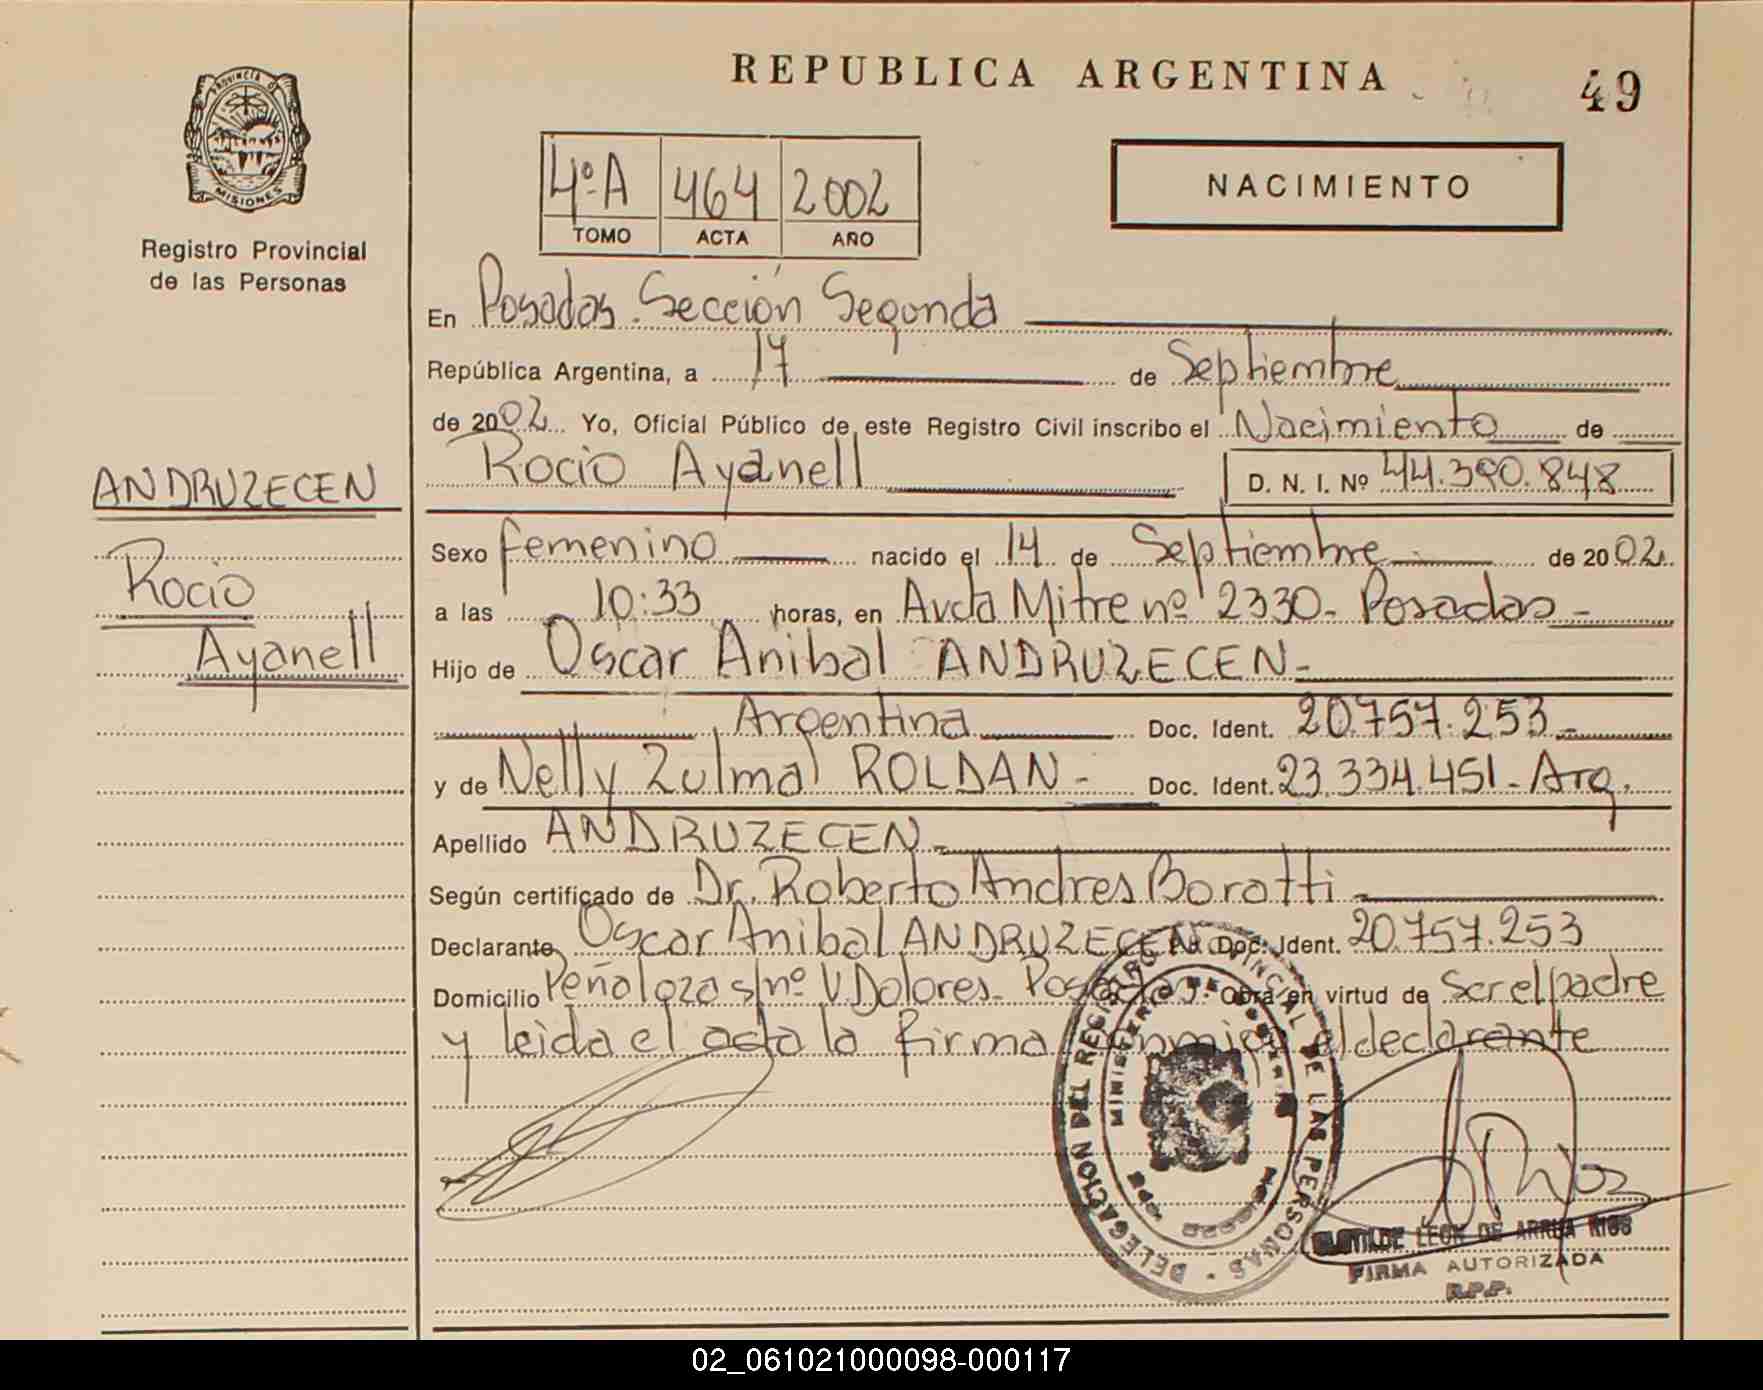 REPUBLICA ARGENTINA
49
PROVINCIA DE
MISIONES
Registro Provincial
de las Personas
4º A 464 2002
TOMO ACTA AÑO
NACIMIENTO
En Posadas. Sección Segunda
República Argentina, a 17 de Septiembre
de 2002 Yo, Oficial Público de este Registro Civil inscribo el Nacimiento de
Rocio Ayanell D. N. I. Nº 44.390.848
ANDRUZECEN
Rocio
Ayanell
Sexo femenino nacido el 14 de Septiembre de 2002
a las 10:33 horas, en Avda Mitre nº 2330- Posadas-
Hijo de Oscar Anibal ANDRUZECEN-
Argentina Doc. Ident. 20.757.253-
y de Nelly Zulma ROLDAN- Doc. Ident. 23.334.451- Arg.
Apellido ANDRUZECEN-
Según certificado de Dr. Roberto Andres Boratti-
Declarante Oscar Anibal ANDRUZECEN Doc. Ident. 20.757.253
Domicilio Peñaloza s/nº V. Dolores- Posadas. Obra en virtud de Ser el padre
y leida el acta la firma conmigo el declarante
DELEGACION DEL REGISTRO PROVINCIAL DE LAS PERSONAS
MINISTERIO DE
CLOTILDE LEON DE ARRUA RIOS
FIRMA AUTORIZADA
R.P.P.
02_061021000098-000117